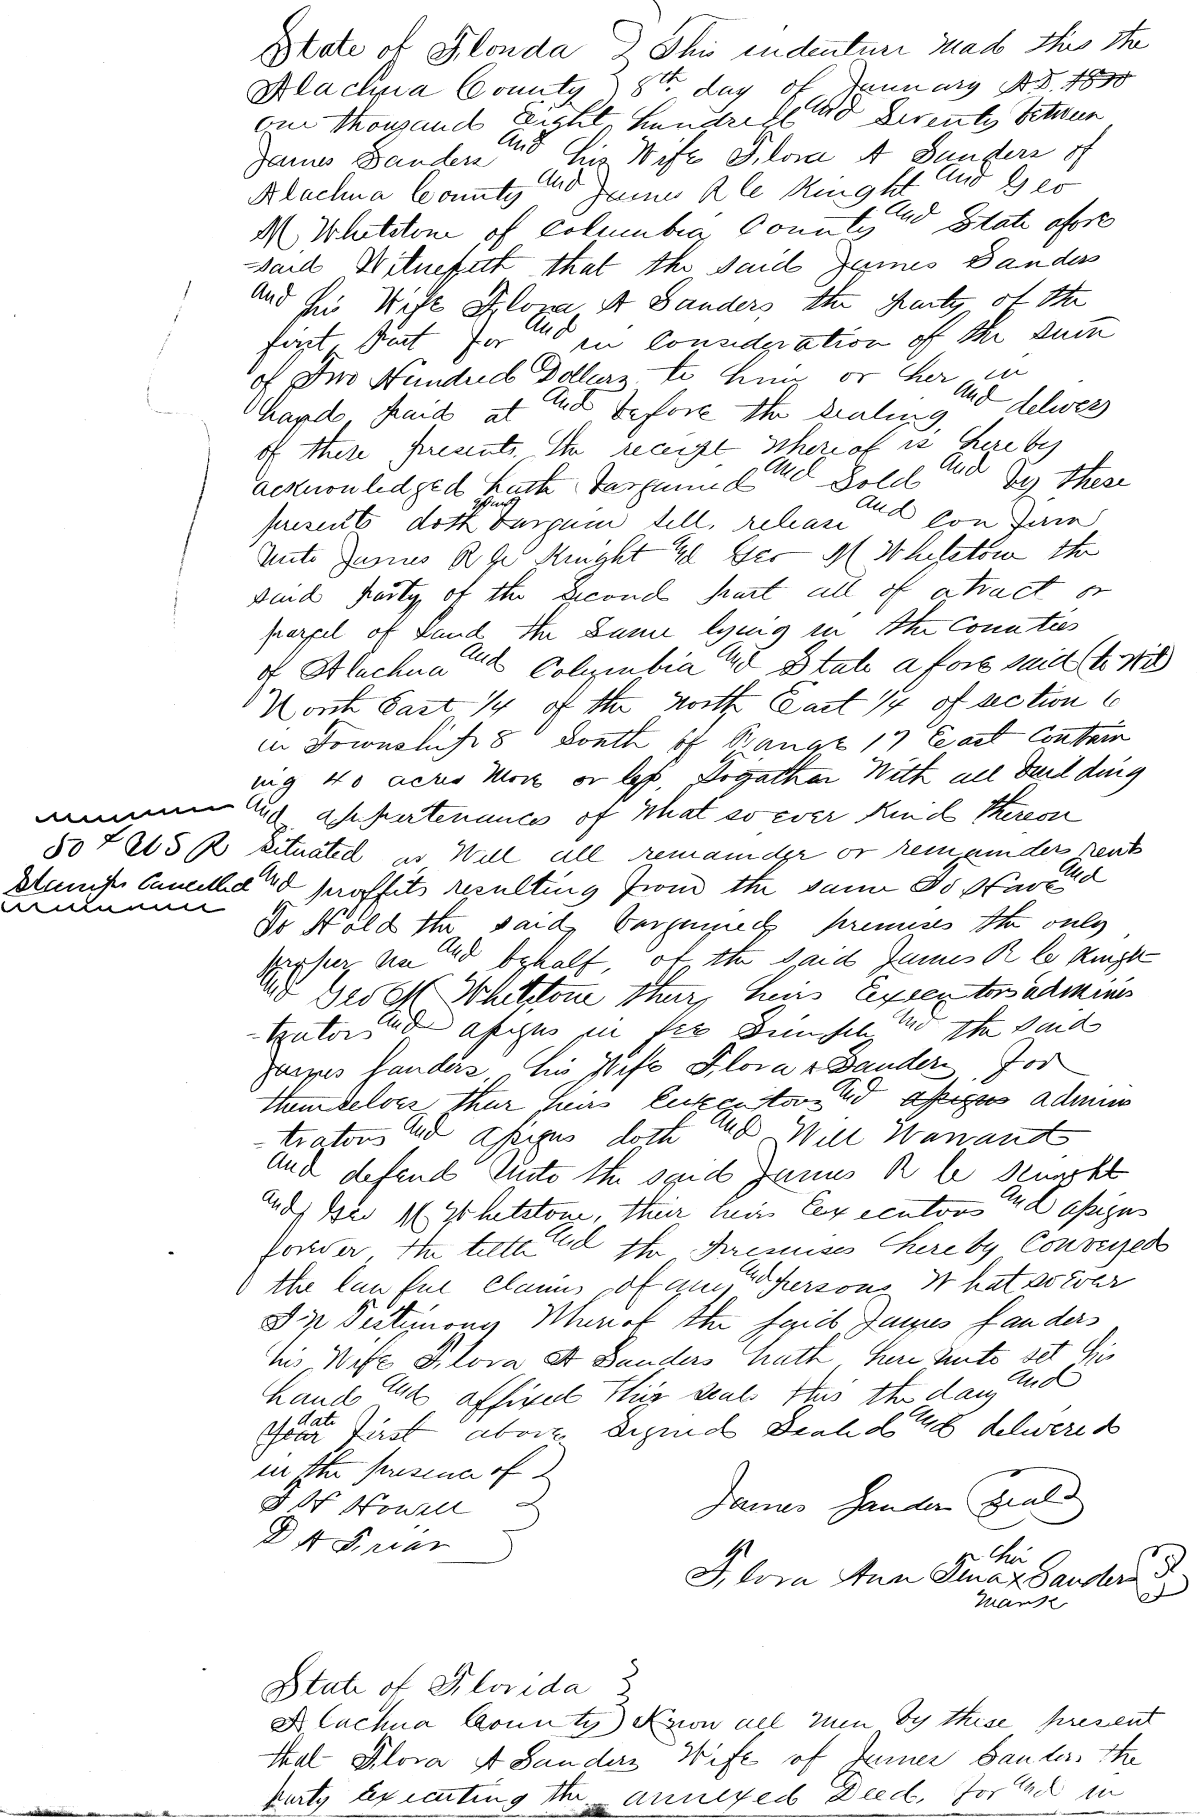 State of Florida } This indenture made this the
Alachua County } 8th day of January A.D. 1870
one thousand Eight hundred and Seventy between
James Sanders and his Wife Flora A Sanders of
Alachua County and James R le Kinght and Geo
M Whetstone of Columbia County and State afore
-said Witnesseth that the said James Sanders
and his Wife Flora A Sanders the party of the
first part for and in Consideration of the sum
of Two Hundred Dollars to him or her in
hand paid at and before the sealing and delivery
of these presents the receipt whereof is hereby
acknowledged hath bargained and Sold and by these
presents doth grant bargain sell, release and Confirm
unto James R le Knight and Geo M Whetstone the
said party of the Second part all of a tract or
parcel of Land the Same lying in the Counties
of Alachua and Columbia and State afore said (to wit)
North East 1/4 of the North East 1/4 of section 6
in Township 8 South of Range 17 East Contain
ing 40 acres More or less, Togather With all building
and appertenances of what so ever Kind thereon
situated as Will all remainder or remainders rents
and proffits resulting from the same To Have and
50 cts U S R
Stamps Cancelled
To Hold the said bargained premises the only
proper use and behalf, of the said James R le Kinght
and Geo M Whetstone their heirs Executors adminis
-trators and assigns in fee Simple and the said
James Sanders his Wife Flora A Sanders for
themselves their heirs Executors and assigns adminis
-trators and assigns doth and Will Warrant
and defend unto the said James R le Kinght
and Geo M Whetstone, their heirs Executors and assigns
forever the title and the Premises hereby Conveyed
the lawful claims of any and persons Whatsoever
In Testimony Whereof the said James Sanders
his Wife Flora A Sanders hath here unto set his
hand and affixed this seal this the day and
date
year first above Signed Sealed and delivered
in the presence of }
J H Howell }
D A Friar }
James Sanders (Seal)
her
Flora Ann x Sanders
mark
State of Florida }
Alachua County } Know all men by these present
that Flora A Sanders Wife of James Sanders the
party Executing the annexed Deed, for and in